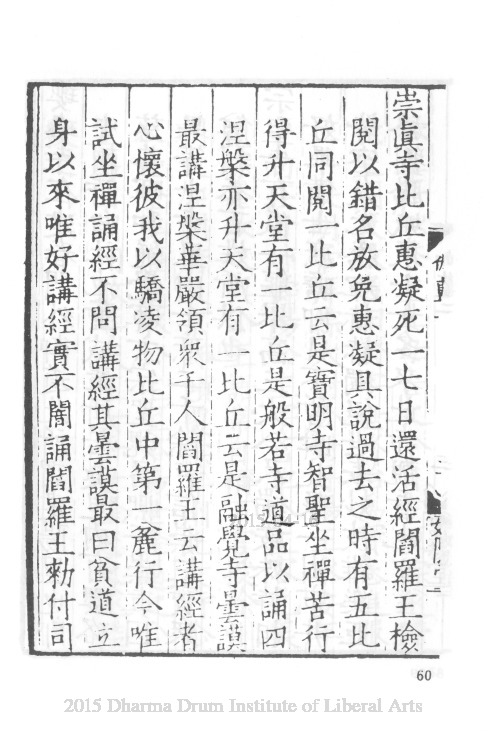 崇眞寺比丘惠凝死一七日還活經閻羅王檢
閱以錯名放免惠凝具說過去之時有五比
丘同閱一比丘云是寶明寺智聖坐禪苦行
得升天堂有一比丘是般若寺道品以誦四
涅槃亦升天堂有一比丘云是融覺寺曇謨
最講涅槃華嚴領衆千人閻羅王云講經者
心懷彼我以驕凌物比丘中第一麁行今唯
試坐禪誦經不問講經其曇謨最曰貧道立
身以來唯好講經實不闇誦閻羅王勑付司
60
2015 Dharma Drum Institute of Liberal Arts